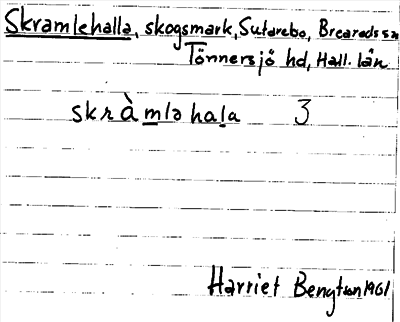 Skramlehalla, skogsmark, Sutarebo, Breareds sn
Tönnersjö hd, Hall. län
skràmləhala 3
Harriet Bengtson 1961